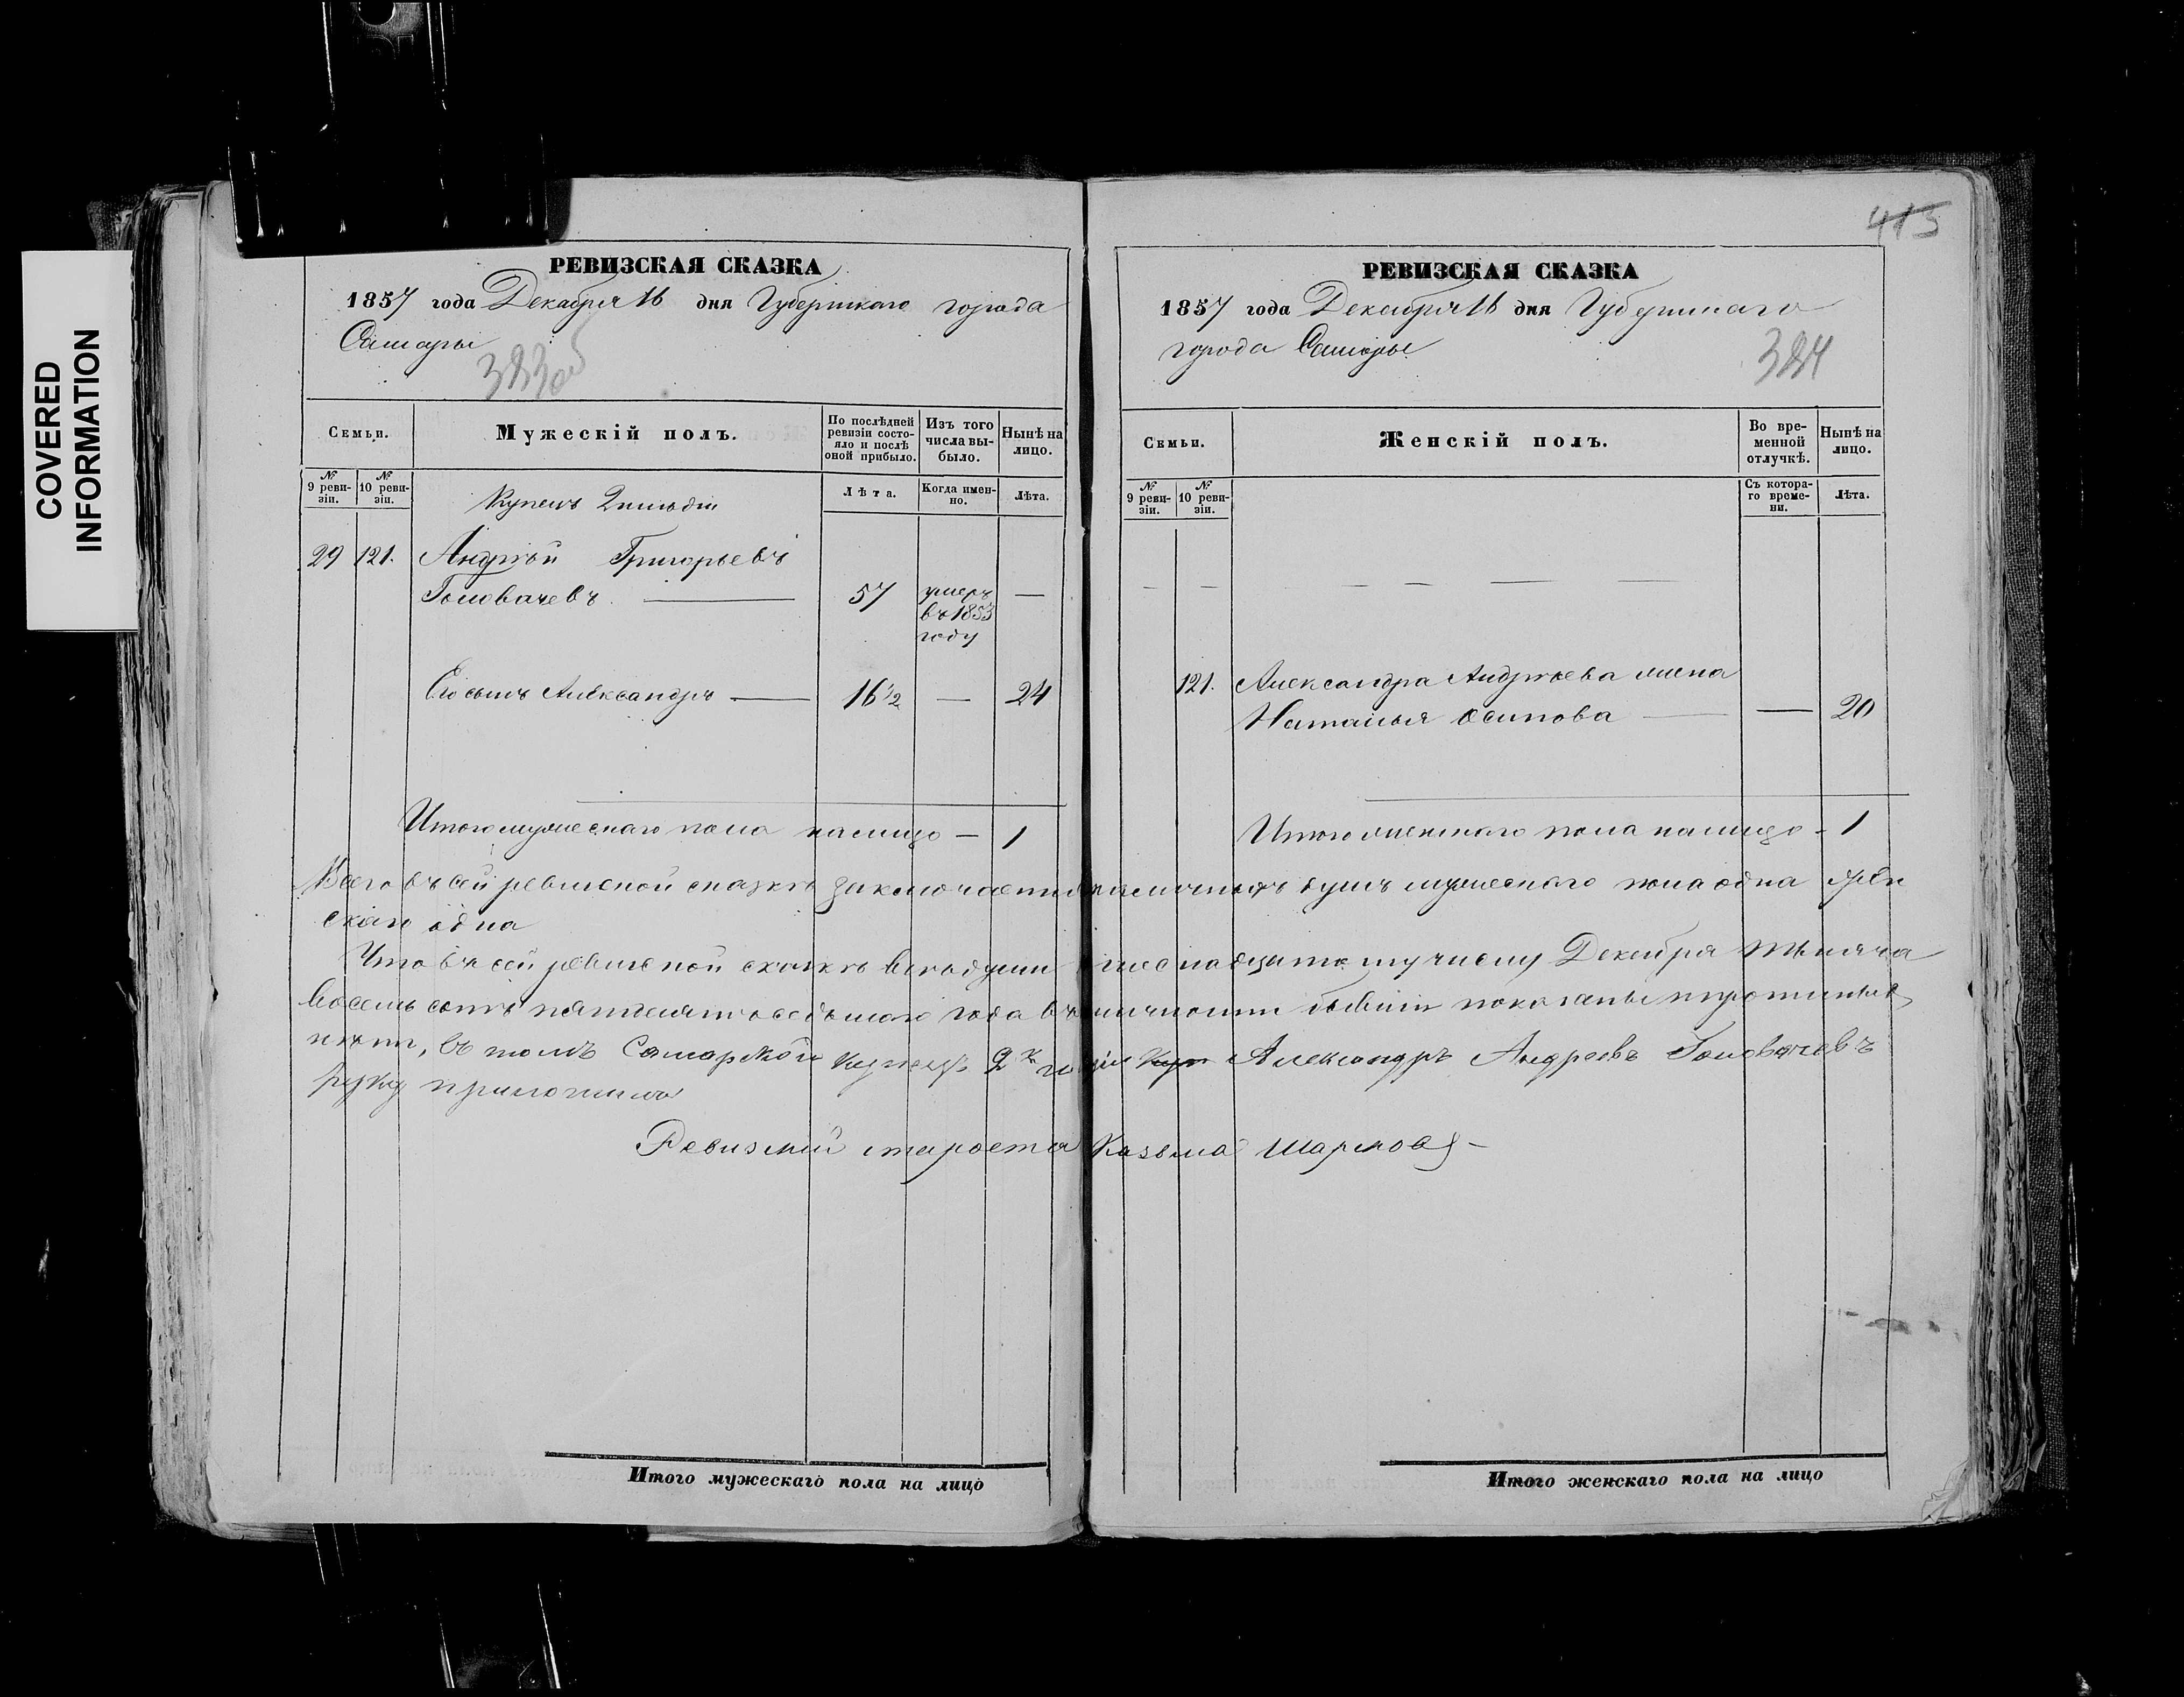 COVERED
INFORMATION
РЕВИЗСКАЯ СКАЗКА
1857 года Декабря 16 дня Губернскаго города
Самары
383об
Семьи.
Мужескій полъ.
По послѣдней ревизіи состояло и послѣ оной прибыло.
Изъ того числа выбыло.
Нынѣ на лицо.
№ 9 ревизіи.
№ 10 ревизіи.
Купецъ 2 гильдіи
Лѣта.
Когда именно.
Лѣта.
29 121. Андрѣй Григорьевъ
Головачевъ. 57 умеръ въ 1853 году —
Его сынъ Александръ — 16½ — 24
Итого мужескаго пола налицо — 1
415
РЕВИЗСКАЯ СКАЗКА
1857 года Декабря 16 дня Губернскаго
города Самары
384
Семьи.
Женскій полъ.
Во временной отлучкѣ.
Нынѣ на лицо.
№ 9 ревизіи.
№ 10 ревизіи.
Съ котораго времени.
Лѣта.
— — — — — —
121. Александра Андрѣева жена
Наталья Осипова — — 20
Итого женскаго пола налицо - 1
Всего въ сей ревизской сказкѣ заключается наличныхъ душъ мужескаго пола одна жен
скаго одна
Что въ сей ревизской сказкѣ всѣ души шестнадцатому числу Декабря тысяча
восемьсотъ пятьдесятъ седьмаго года въ личности бывшіе показаны и прописныхъ
нѣтъ, въ томъ Самарской купецъ 2й гильдіи Александръ Андреевъ Головачевъ
руку приложилъ
Ревизскій староста Козьма
Итого мужескаго пола на лицо
Итого женскаго пола на лицо